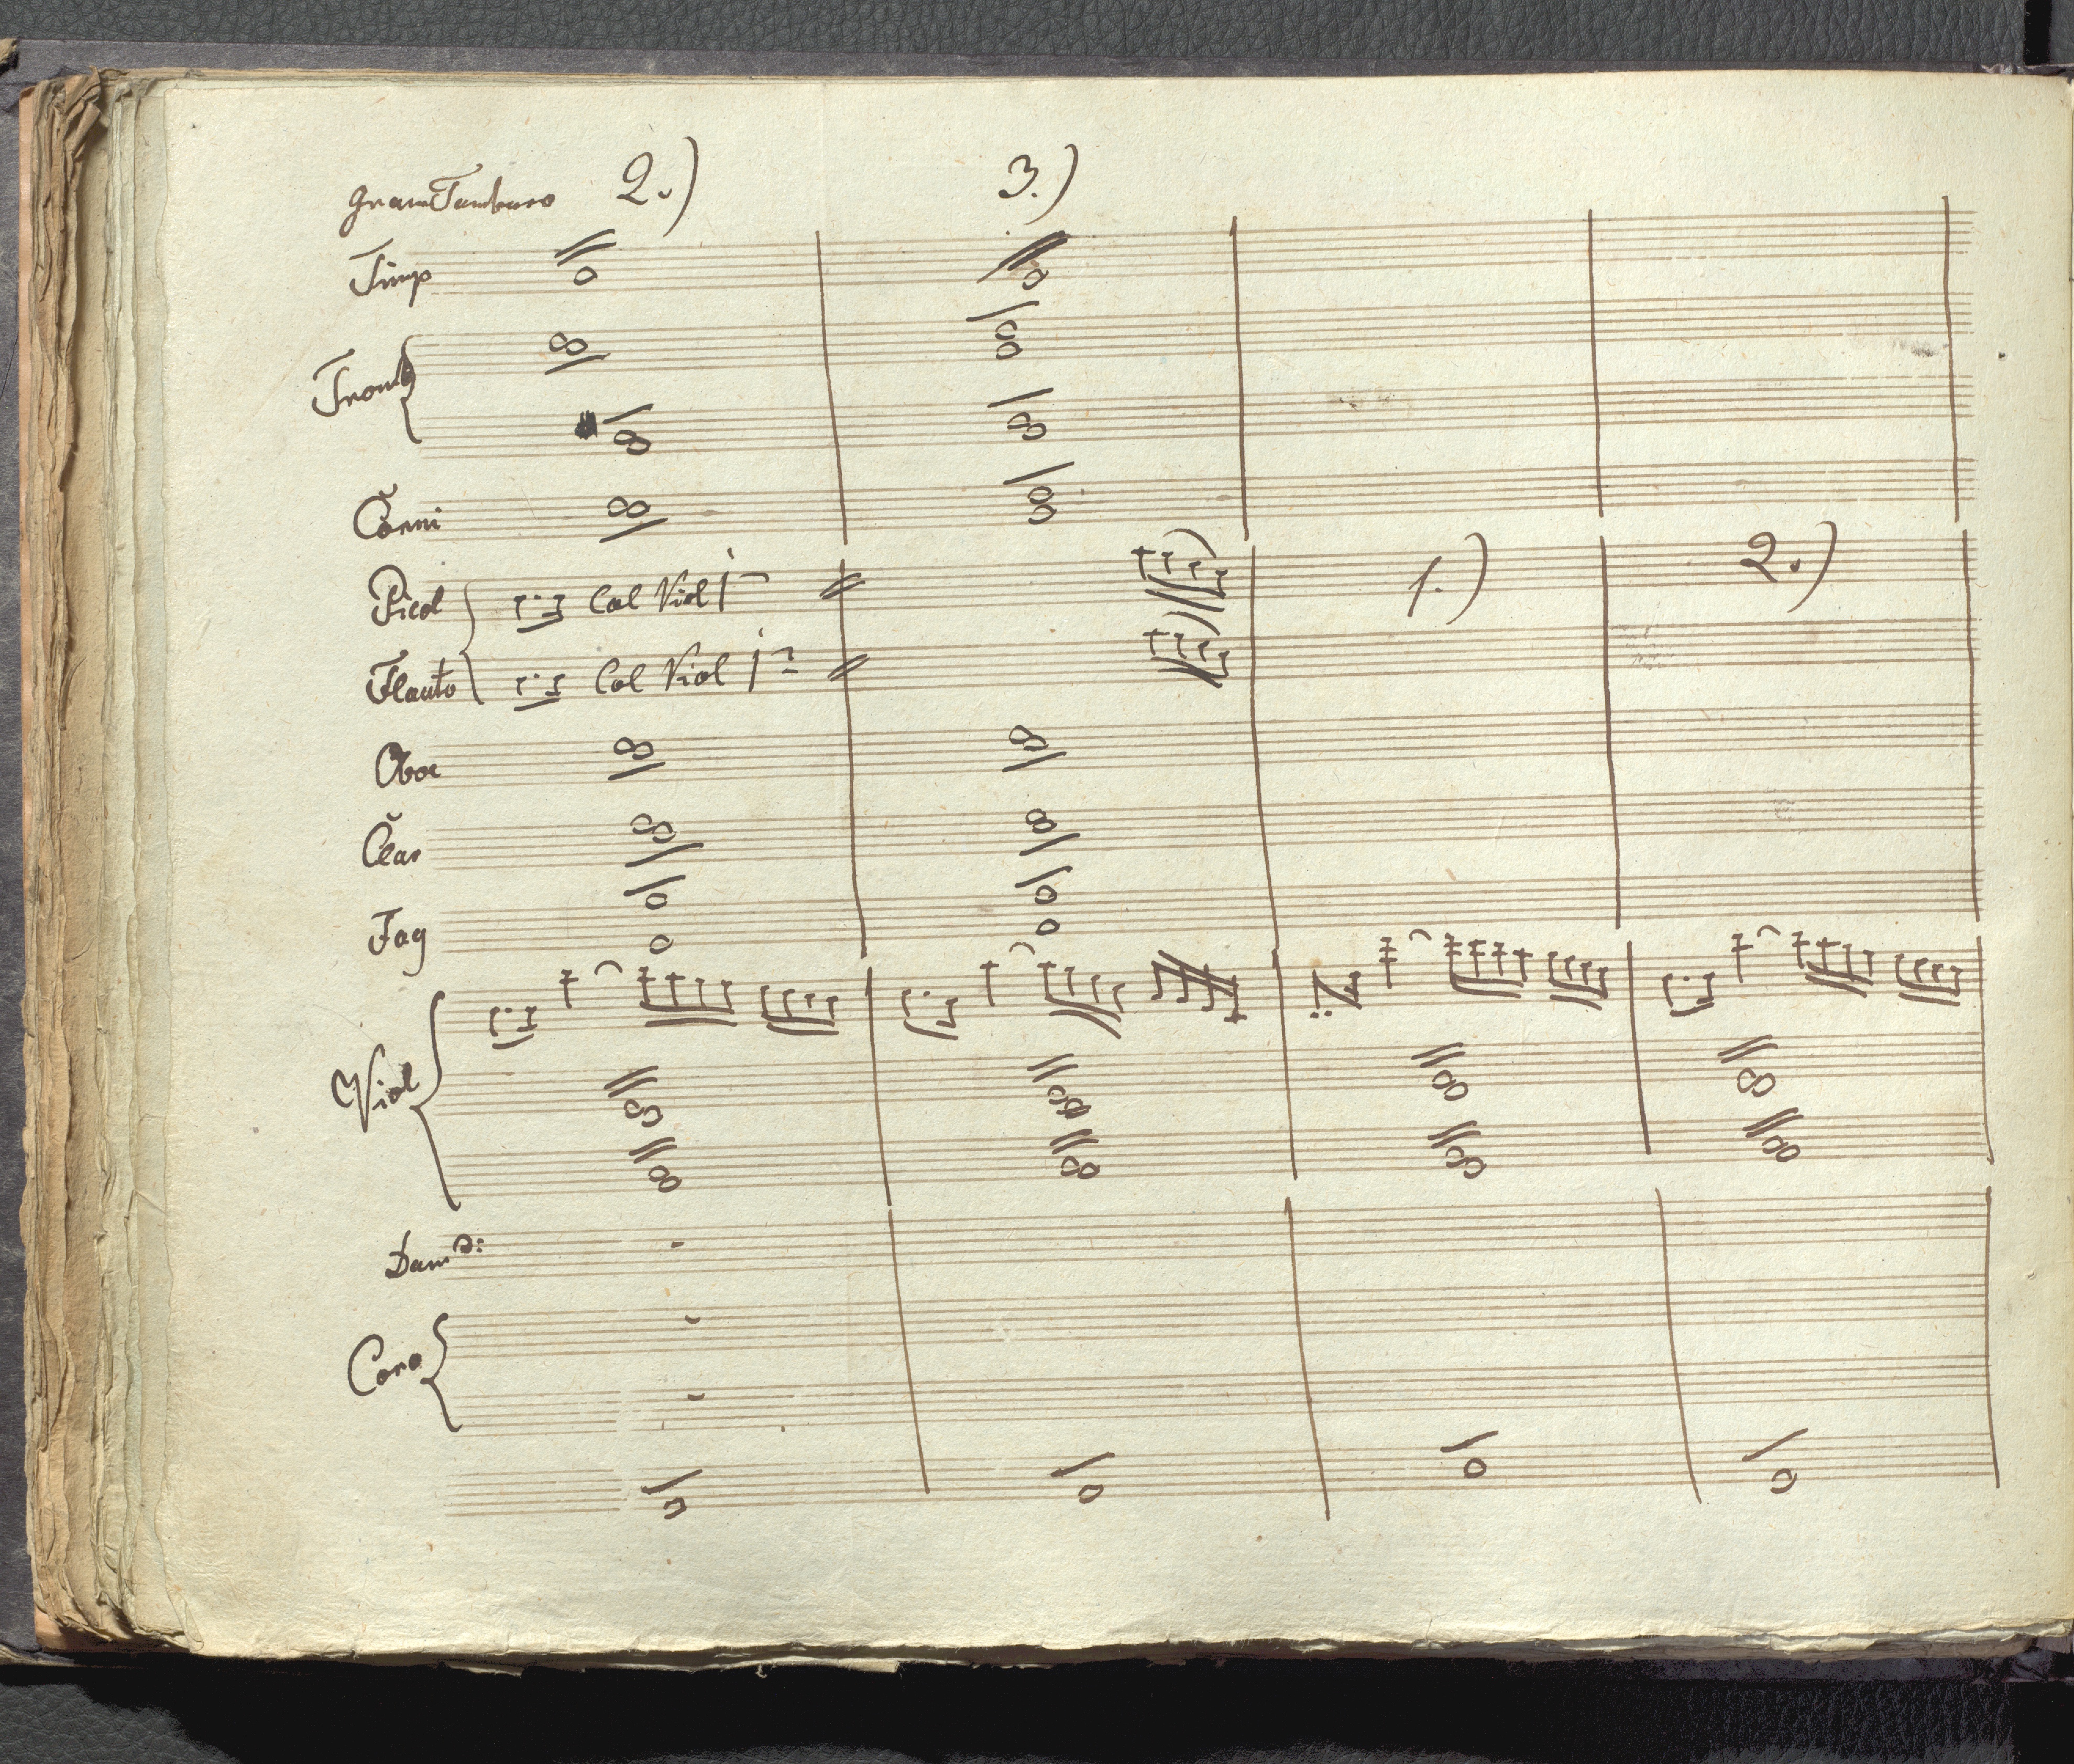 gran Tamburo 2.) 3.)
Timp
Tromb
Corni
Picol Col Viol 1 1.) 2.)
Flauto Col Viol 1
Oboe
Clar
Fag
Viol
Coro